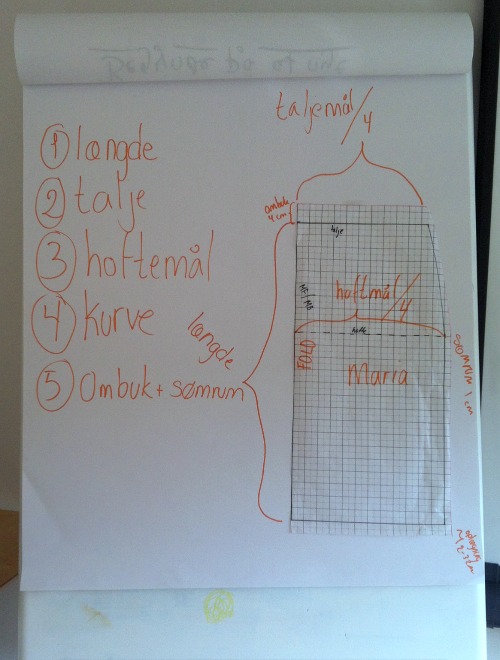 taljemål/4
① længde
② talje
③ hoftemål
④ kurve
⑤ Ombuk + sømrum
ombuk
4 cm
talje
længde
MF/MB
hoftmål/4
hofte
FOLD
Maria
sømrum 1 cm